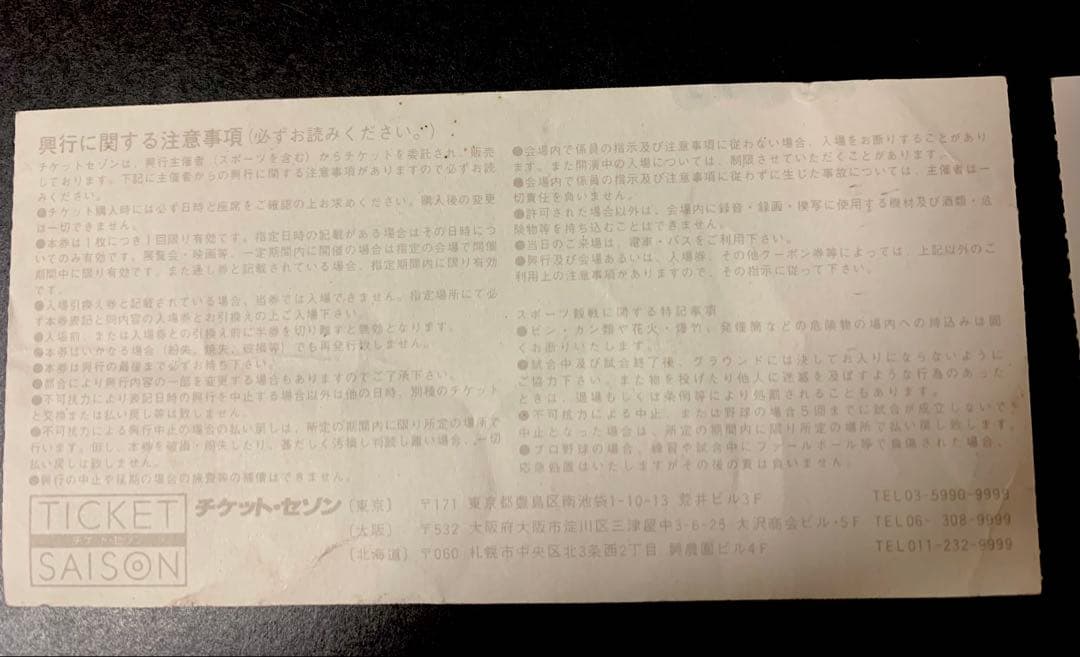 興行に関する注意事項(必ずお読みください。)
チケットセゾンは、興行主催者(スポーツを含む)からチケットを委託され、販売
しております。下記に主催者からの興行に関する注意事項がありますので必ずお読
みください。
●チケット購入時には必ず日時と座席をご確認の上お求めください。購入後の変更
は一切できません。
●本券は1枚につき1回限り有効です。指定日時の記載がある場合はその日時につ
いてのみ有効です。展覧会・映画等、一定期間内に開催の場合は指定の会場で開催
期間中に限り有効です。また通し券と記載されている場合、指定期間内に限り有効
です。
●入場引換え券と記載されている場合、当券では入場できません。指定場所にて必
ず本券表記と同内容の入場券とお引換えの上ご入場下さい。
●入場前、または入場券との引換え前に半券を切り離すと無効となります。
●本券はいかなる場合(紛失、焼失、破損等)でも再発行致しません。
●本券は興行の最後まで必ずお持ち下さい。
●都合により興行内容の一部を変更する場合もありますのでご了承下さい。
●不可抗力により表記日時の興行を中止する場合以外は他の日時、別種のチケット
と交換または払い戻し等は致しません。
●不可抗力による興行中止の場合の払い戻しは、所定の期間内に限り所定の場所で
行います。但し、本券を破損・紛失したり、著だしく汚損し判読し難い場合、一切
払い戻しは致しません。
●興行の中止や延期の場合の旅費等の補償はできません。
●会場内で係員の指示及び注意事項に従わない場合、入場をお断りすることがあり
ます。また開演中の入場については、制限させていただくことがあります。
●会場内で係員の指示及び注意事項に従わずに生じた事故については、主催者は一
切責任を負いません。
●許可された場合以外は、会場内に録音・録画・模写に使用する機材及び酒類・危
険物等を持ち込むことはできません。
●当日のご来場は、電車・バスをご利用下さい。
●興行及び会場あるいは、入場券、その他クーポン券等によっては、上記以外のご
利用上の注意事項がありますので、その指示に従って下さい。
スポーツ観戦に関する特記事項
●ビン・カン類や花火・爆竹、発煙筒などの危険物の場内への持込みは固
くお断りいたします。
●試合中及び試合終了後、グラウンドには決してお入りにならないように
ご協力下さい。また物を投げたり他人に迷惑を及ぼすような行為のあった
ときは、退場もしくは条例等により処罰されることもあります。
●不可抗力による中止、または野球の場合5回までに試合が成立しないで
中止となった場合は、所定の期間内に限り所定の場所で払い戻し致します。
●プロ野球の場合、練習や試合中にファールボール等で負傷された場合、
応急処置はいたしますがその後の責は負いません。
TICKET
チケット・セゾン
SAISON
チケット・セゾン
〔東京〕 〒171 東京都豊島区南池袋1-10-13 荒井ビル3F TEL03-5990-9999
〔大阪〕 〒532 大阪府大阪市淀川区三津屋中3-6-25 大沢商会ビル・5F TEL06-308-9999
〔北海道〕 〒060 札幌市中央区北3条西2丁目 興農園ビル4F TEL011-232-9999